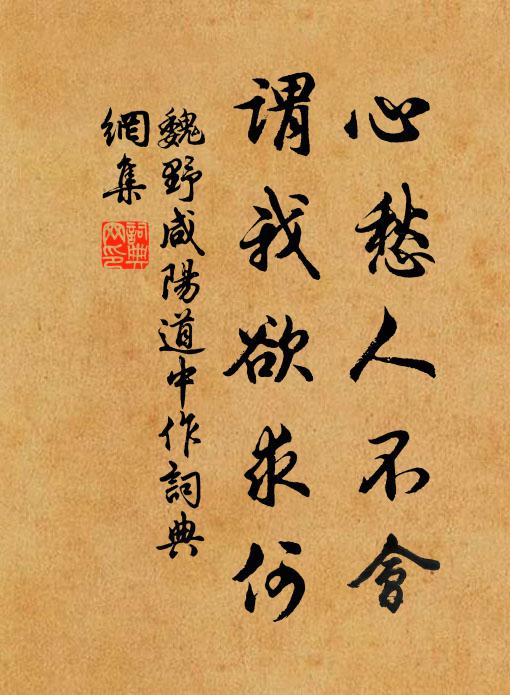 心愁人不會
謂我欲求何
魏野咸陽道中作詞典
網集
詞典
網印